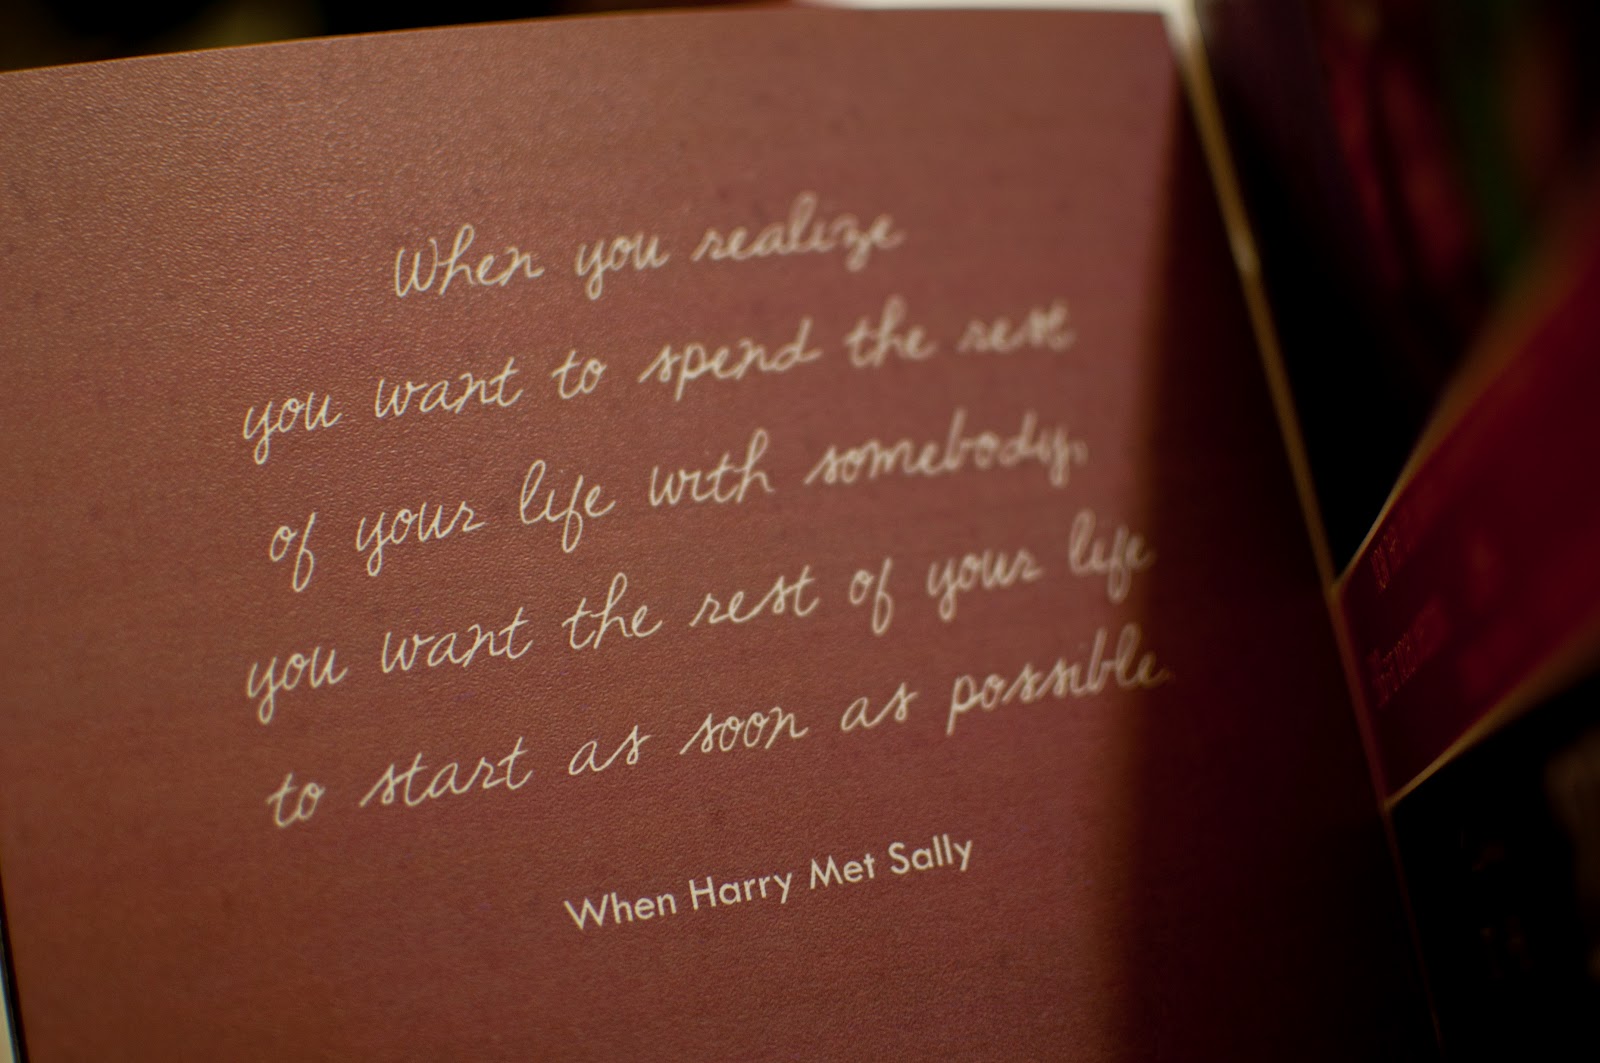 When you realize
you want to spend the rest
of your life with somebody,
you want the rest of your life
to start as soon as possible.
When Harry Met Sally